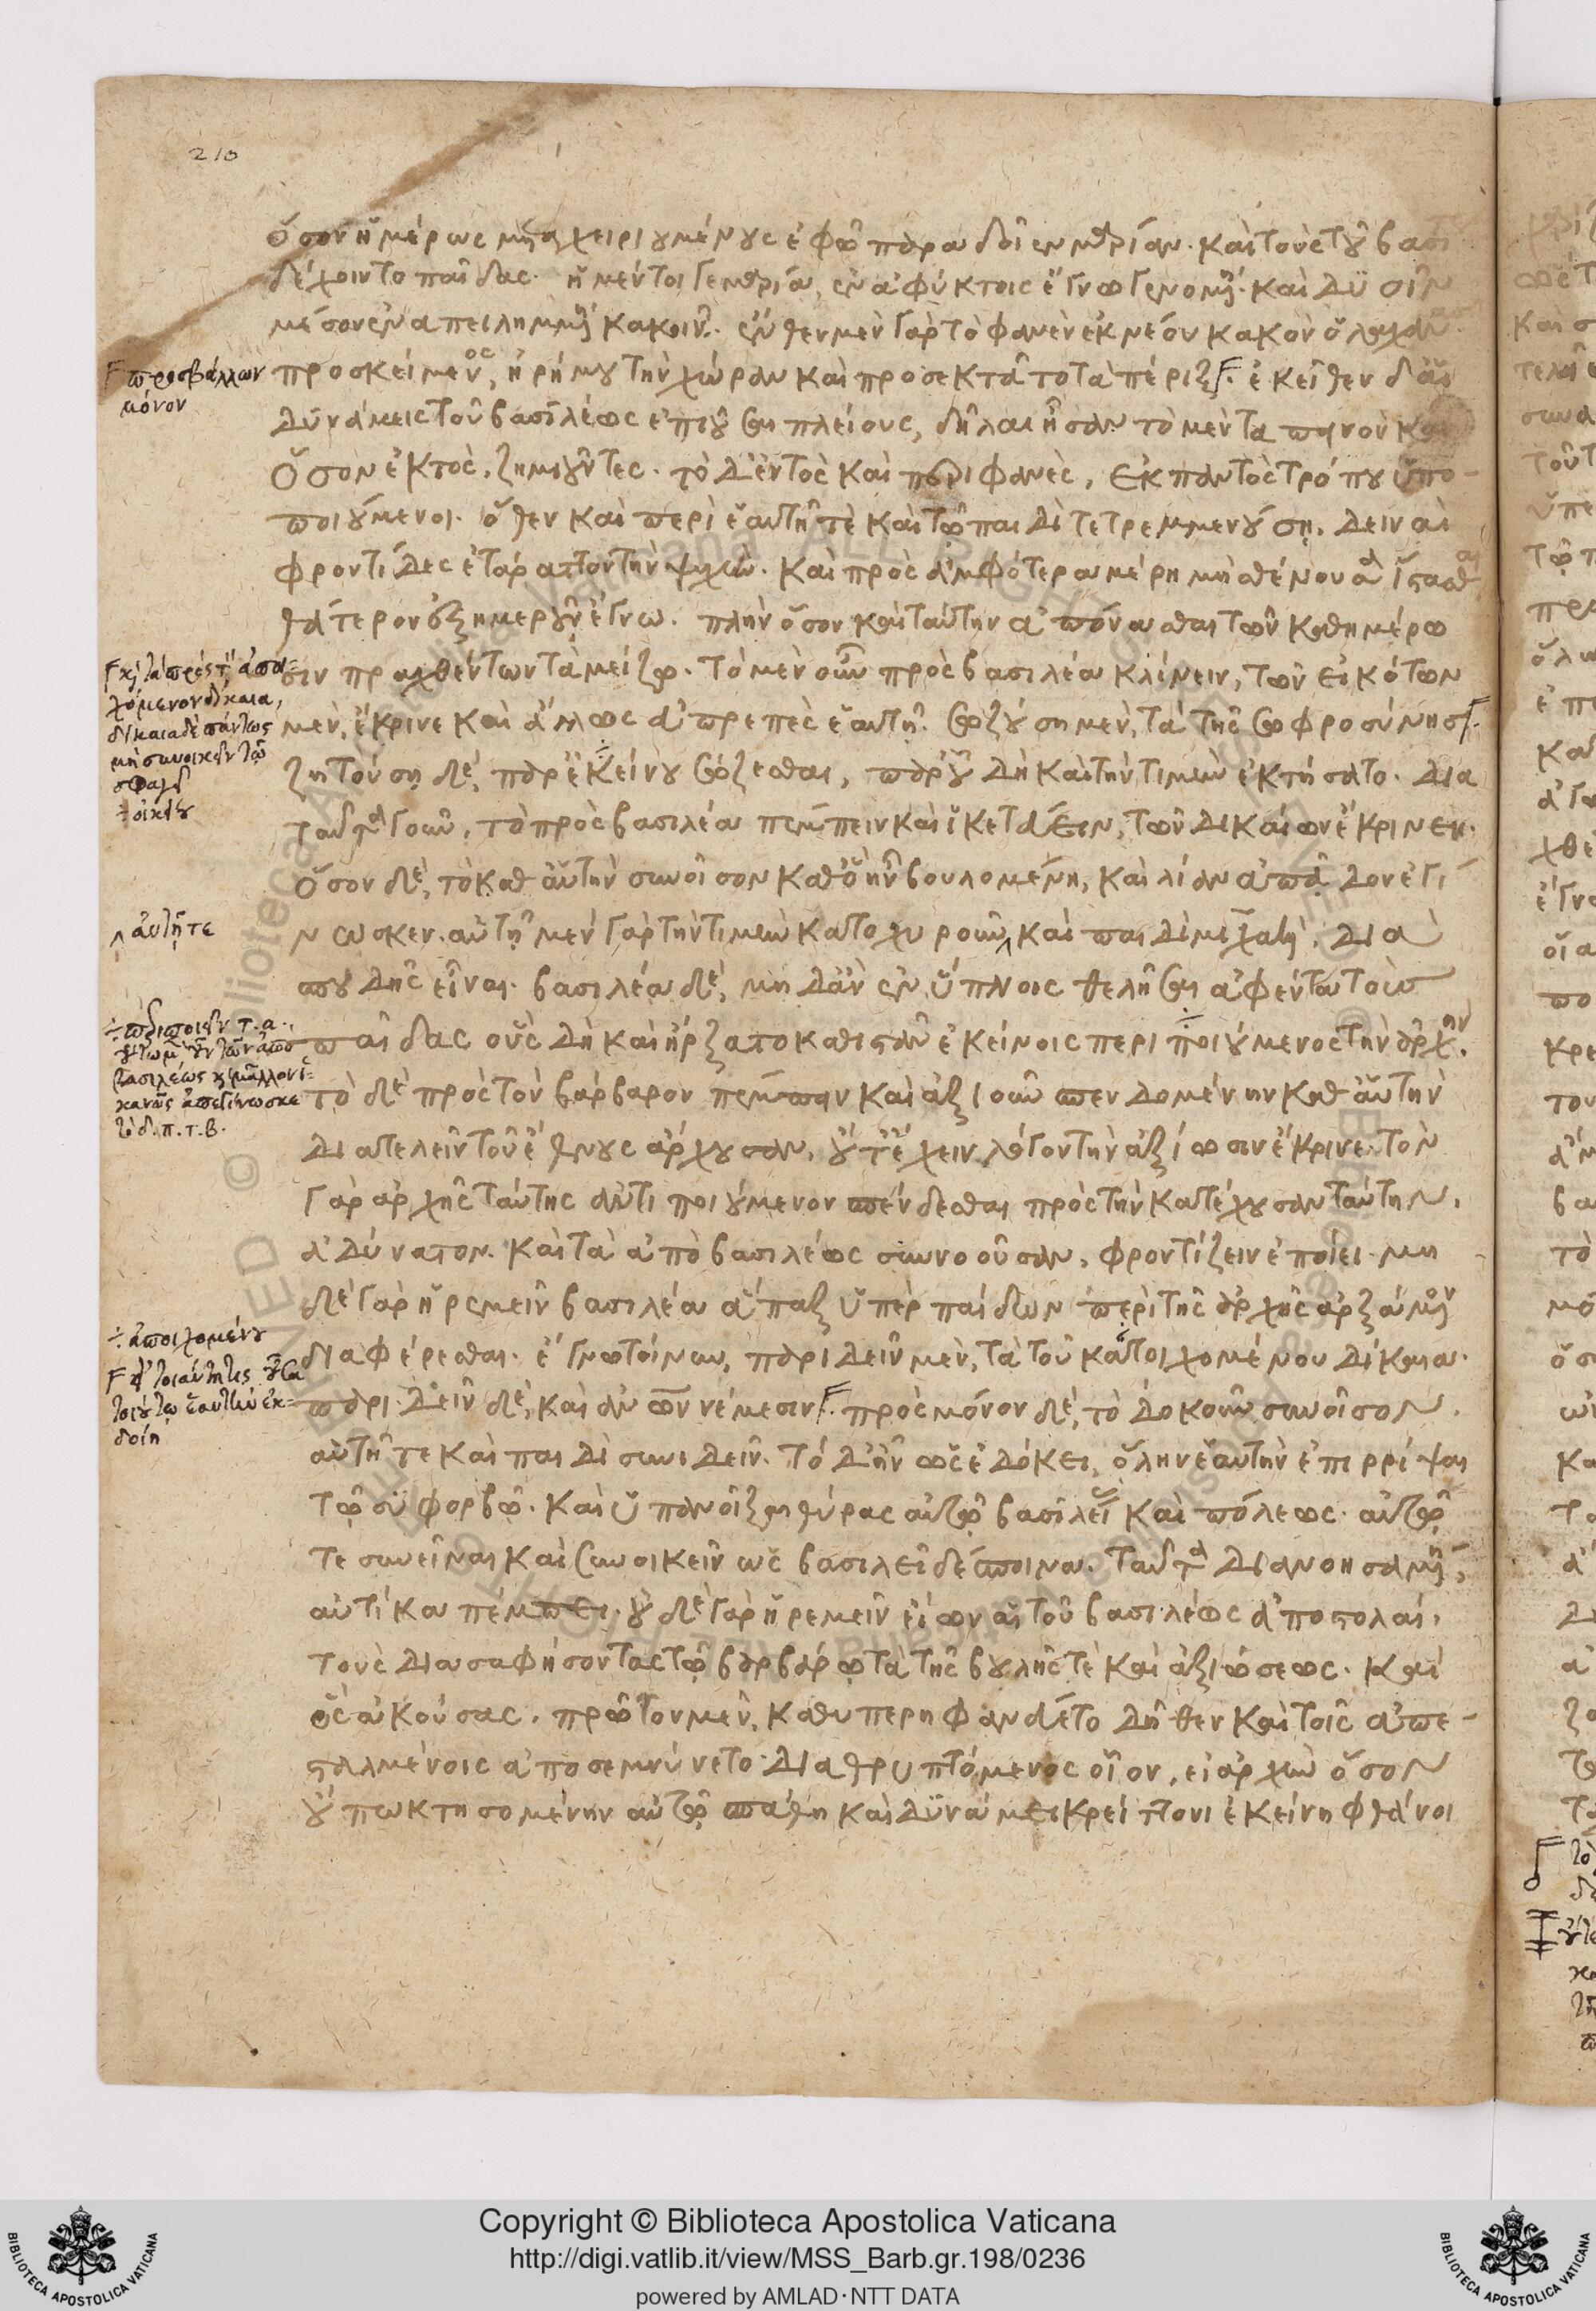 210
ὅσον ἡμέρως μεταχειριουμένους ἐφ' ᾧ παραδοῖεν μητρίαν. καὶ τοὺς τοῦ βασι
δέχοιντο παῖδας. ἡ μέντοι γε μαρία, ἐν ἀφύκτοις ἔγνω γενομένη. καὶ δυσὶν
μέσον ἐναπειλημμένη κακοῖν. ἔνθεν μὲν γὰρ τὸ φανὲν ἐκ νέον κακὸν
προσκείμενος, ἠρήμου τὴν χώραν καὶ προσεκτᾶτο τὰ πέριξ. ἐκεῖθεν δ' αἱ
δυνάμεις τοῦ βασιλέως ἐπιοῦσαι πλείους, δῆλαι ἦσαν τὸ μὲν
ὅσον ἐκτός, ζημιοῦντες. τὸ δ' ἐντὸς καὶ περιφανές, ἐκ παντὸς τρόπου ὑπο-
ποιούμενοι. ὅθεν καὶ περὶ ἑαυτῇ τὲ καὶ τῷ παιδὶ τετρεμμενούσῃ. δειναὶ
φροντίδες ἐτάραττον τὴν ψυχήν. καὶ πρὸς ἀμφότερα μέρη μὴ σθένουσα ἵστασθαι
θάτερον ἐξημεροῦν ἔγνω. πλὴν ὅσον καὶ ταύτην ἀπόνασθαι τῶν καθημέρω
σιν πραχθέντων τὰ μείζω. τὸ μὲν οὖν πρὸς βασιλέα κλίνειν, τῶν εἰκότων
μὲν, ἔκρινε καὶ ἄλλως ἀπρεπὲς ἑαυτῇ. σωζούσῃ μὲν, τὰ τῆς σωφροσύνης.
ζητούσῃ δὲ, παρ' ἐκείνου σώζεσθαι, παρ' οὗ δὴ καὶ τὴν τιμὴν ἐκτήσατο. Δια
ταῦτα γοῦν, τὸ πρὸς βασιλέα πέμπειν καὶ ἱκετεύειν, τῶν δικαίων ἔκρινεν.
Ὅσον δὲ, τὸ καθ' αὑτὴν συνοῖσον καθ' ὃ ἦν βουλομένη, καὶ λίαν ἀπᾷδον ἐγί
νωσκεν. αὐτῇ μὲν γὰρ τὴν τιμὴν κατοχυροῦν, καὶ παιδὶ μεῖναι, διὰ
σπουδῆς εἶναι. βασιλέα δὲ, μηδ' ἂν ἐν ὕπνοις θελῆσαι ἀφέντα τοὺς
παῖδας οὓς δὴ καὶ ἤρξατο καθιστᾶν ἐκείνοις περιποιούμενος τὴν ἀρχήν.
τὸ δὲ πρὸς τὸν βάρβαρον πέμπειν καὶ ἀξιοῦν σπενδομένην καθ' αὑτὴν
διατελεῖν τοῦ ἔθνους ἄρχουσαν, οὔτ' ἔχειν λόγον τὴν ἀξίωσιν ἔκρινε. τὸν
γὰρ ἀρχῆς ταύτης ἀντιποιούμενον σπένδεσθαι πρὸς τὴν κατέχουσαν ταύτην,
ἀδύνατον. καὶ τὰ ἀπὸ βασιλέως συννοοῦσαν, φροντίζειν ἐποίει. μη
δὲ γὰρ ἠρεμεῖν βασιλέα ἅπαξ ὑπὲρ παίδων περὶ τῆς ἀρχῆς ἀρξάμενον
διαφέρεσθαι. ἔγνω τοίνυν, παριδεῖν μὲν, τὰ τοῦ κατοιχομένου δίκαια.
παριδεῖν δὲ, καὶ ἀνθρώπων νέμεσιν. πρὸς μόνον δὲ, τὸ δοκοῦν συνοῖσον
αὐτῇ τε καὶ παιδὶ συνιδεῖν. τό δ' ἦν ὡς ἐδόκει, ὅλην ἑαυτὴν ἐπιρρίψαι
τῷ συφορβῷ. καὶ ὑπανοῖξαι θύρας αὐτῷ βασιλεῖ καὶ πόλεως. αὐτῷ
τε συνεῖναι καὶ συνοικεῖν ὡς βασιλεῖ δέσποιναν. ταῦτα διανοησαμένη,
αὐτίκα πέμπει. οὐδὲ γὰρ ἠρεμεῖν εἴων αἱ τοῦ βασιλέως ἀποστολαί,
τοὺς διασαφήσοντας τῷ βαρβάρῳ τὰ τῆς βουλῆς τὲ καὶ ἀξιώσεως. καὶ
ὃς ἀκούσας, πρῶτον μὲν, καθυπερηφανεύετο δῆθεν καὶ τοῖς ἀπε-
σταλμένοις ἀπεσεμνύνετο. διαθρυπτόμενος οἷον, εἰ ἀρχὴν ὅσον
οὔπω κτησομένην αὐτῷ σπάθη καὶ δυνάμει κρείττονι ἐκείνη φθάνοι
προσβάλλων
μόνον
καὶ τὰ πρὸς τὸν ἀποι-
χόμενον δίκαια,
δίκαια δὲ πάντως
μὴ συνοικεῖν τῷ
σφαγεῖ
οἰκείου
αὐτῇ τε
περιποιεῖν τ. α.
βασιλέως καὶ μᾶλλον ἱ-
κανῶς ἀπεγίνωσκε
τὸ δ. π. τ. β.
ἀποιχομένου
εἰ τοιαύτη τις οὖσα
τοιούτῳ ἑαυτὴν ἐκ-
δοίη
Copyright © Biblioteca Apostolica Vaticana
http://digi.vatlib.it/view/MSS_Barb.gr.198/0236
powered by AMLAD·NTT DATA
BIBLIOTECA APOSTOLICA VATICANA
BIBLIOTECA APOSTOLICA VATICANA